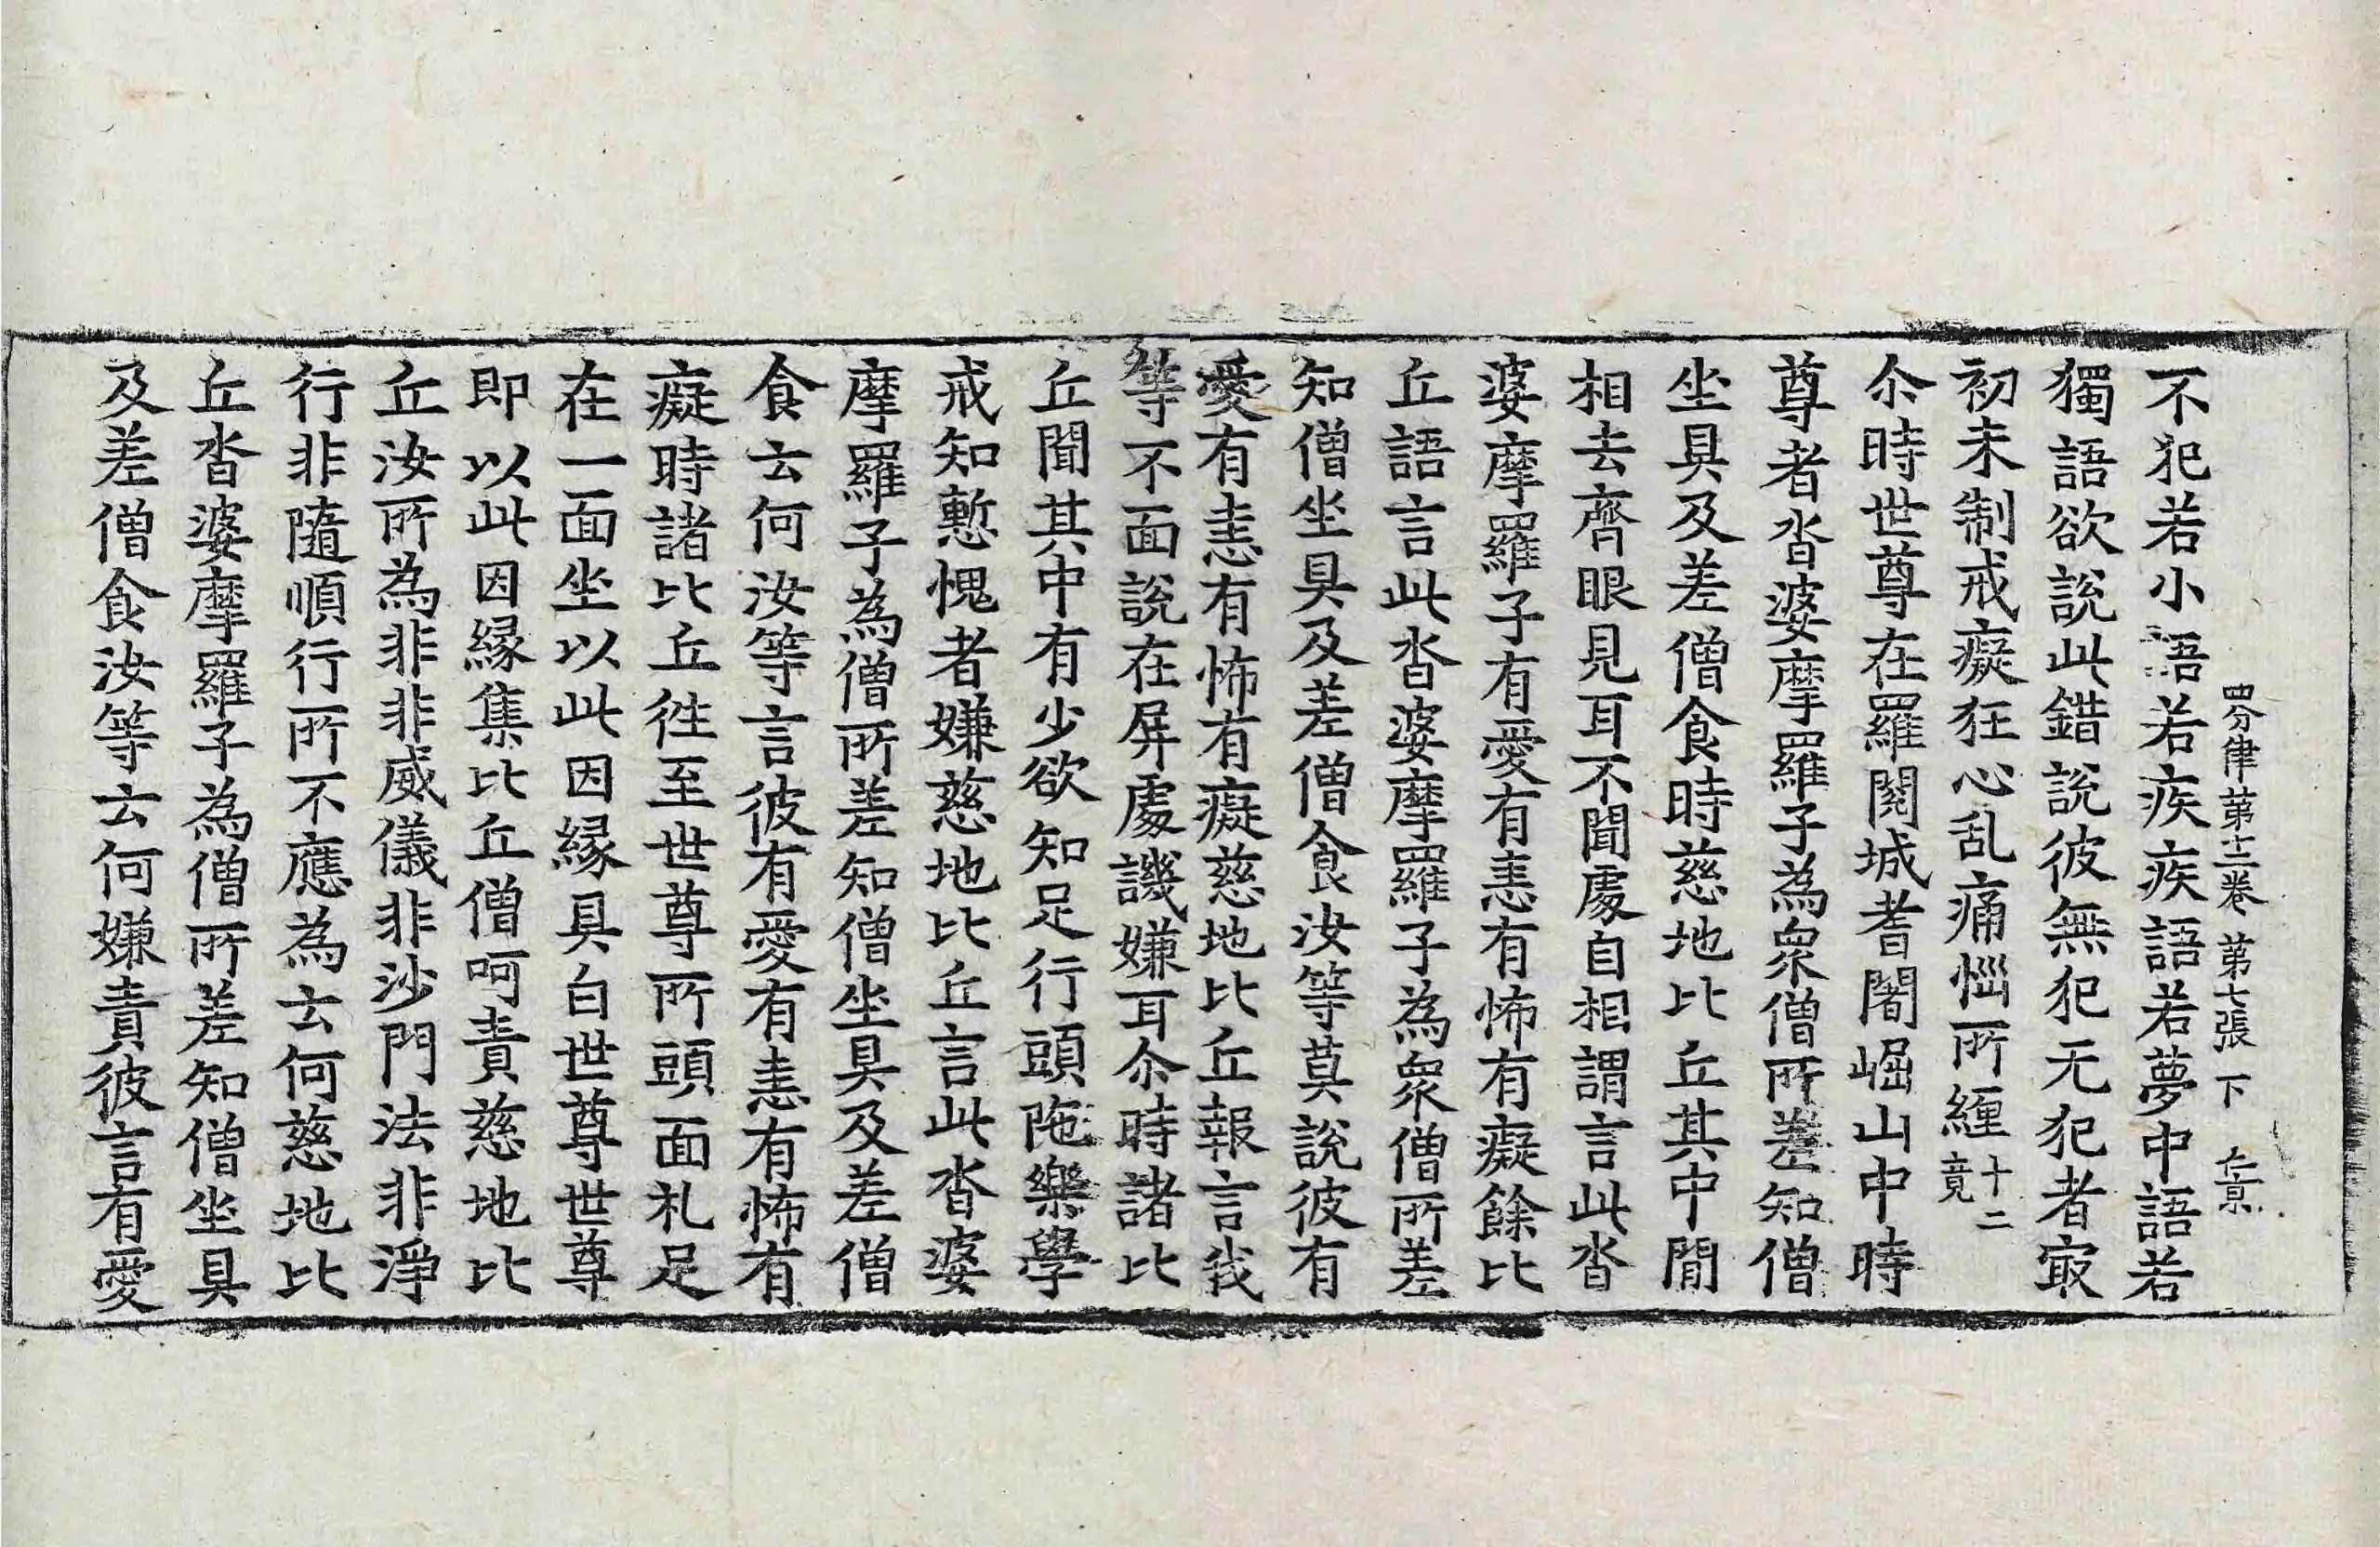 四分律第十二卷 第七張 下
不犯若小語若疾疾語若夢中語若
獨語欲說此錯說彼無犯无犯者㝡
初未制戒癡狂心乱痛惱所纏十二竟
尒時世尊在羅閱城耆闍崛山中時
尊者沓婆摩羅子為眾僧所差知僧
坐具及差僧食時慈地比丘其中間
相去齊眼見耳不聞處自相謂言此沓
婆摩羅子有愛有恚有怖有癡餘比
丘語言此沓婆摩羅子為眾僧所差
知僧坐具及差僧食汝等莫說彼有
愛有恚有怖有癡慈地比丘報言我
等不面說在屏處譏嫌耳尒時諸比
丘聞其中有少欲知足行頭陁樂學
戒知慙愧者嫌慈地比丘言此沓婆
摩羅子為僧所差知僧坐具及差僧
食云何汝等言彼有愛有恚有怖有
癡時諸比丘徃至世尊所頭面礼足
在一面坐以此因緣具白世尊世尊
即以此因緣集比丘僧呵責慈地比
丘汝所為非非威儀非沙門法非淨
行非隨順行所不應為云何慈地比
丘沓婆摩羅子為僧所差知僧坐具
及差僧食汝等云何嫌責彼言有愛